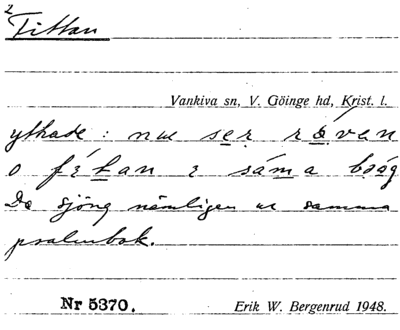 2
Tittan
Vankiva sn, V. Göinge hd, Krist. l.
ytrade: nu ser råven
o fekan i sama boåg
De sjöng nämligen ur samma
psalmbok.
Nr 5370. Erik W. Bergenrud 1948.